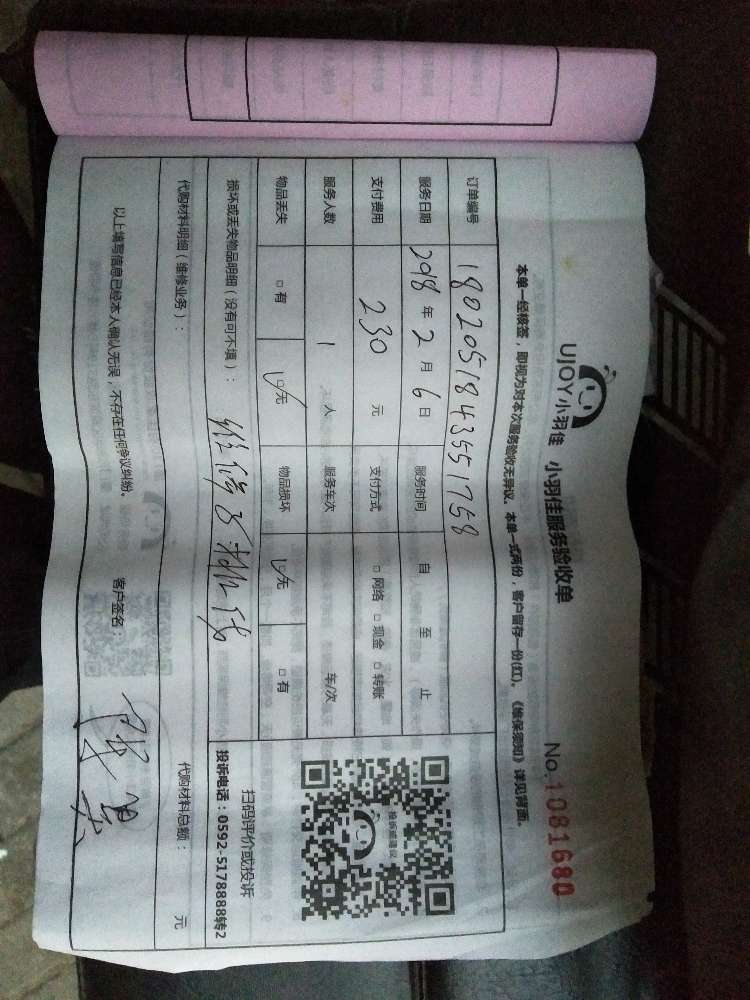 UJOY小羽佳 小羽佳服务验收单 No.1081680
本单一经核签，即视为对本次服务验收无异议。本单一式两份，客户留存一份(红)。《维保须知》详见背面。
订单编号 1802051843551758
服务日期 2018年2月6日 服务时间 自 至 止
支付费用 230 元 支付方式 □网络 □现金 □转账
服务人数 1 人 服务车次 车/次
物品丢失 □有 ☑无 物品损坏 ☑无 □有
投诉或建议
扫码评价或投诉
投诉电话：0592-5178888转2
损坏或丢失物品明细（没有可不填）：
代购材料明细（维修业务）： 代购材料总额： 元
以上填写信息已经本人确认无误，不存在任何争议纠纷。 客户签名：